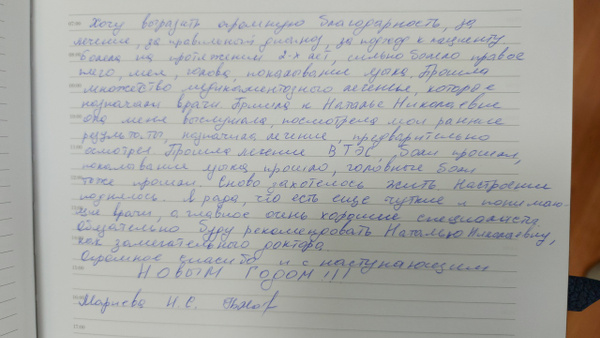 Хочу выразить огромную благодарность, за
лечение, за правильный диагноз, за подход к пациенту
Болела на протяжении 2-х лет, сильно болело правое
плечо, шея, голова, покалывание уха. Прошла
множество медикаментозного лечения, которое
назначали врачи Пришла к Наталье Николаевне
она меня выслушала, посмотрела мои ранние
результаты, назначила лечение, предварительно
осмотрев. Прошла лечение ВТЭС, Боли прошли,
покалывание уха прошло, головные боли
тоже прошли. Снова захотелось жить. Настроение
поднялось. Я рада, что есть еще чуткие и понимаю-
щие врачи, а главное очень хорошие специалисты
Обязательно буду рекомендовать Наталью Николаевну,
как замечательного доктора.
Огромное спасибо и с наступающим
НОВЫМ ГОДОМ!!!
И.С.